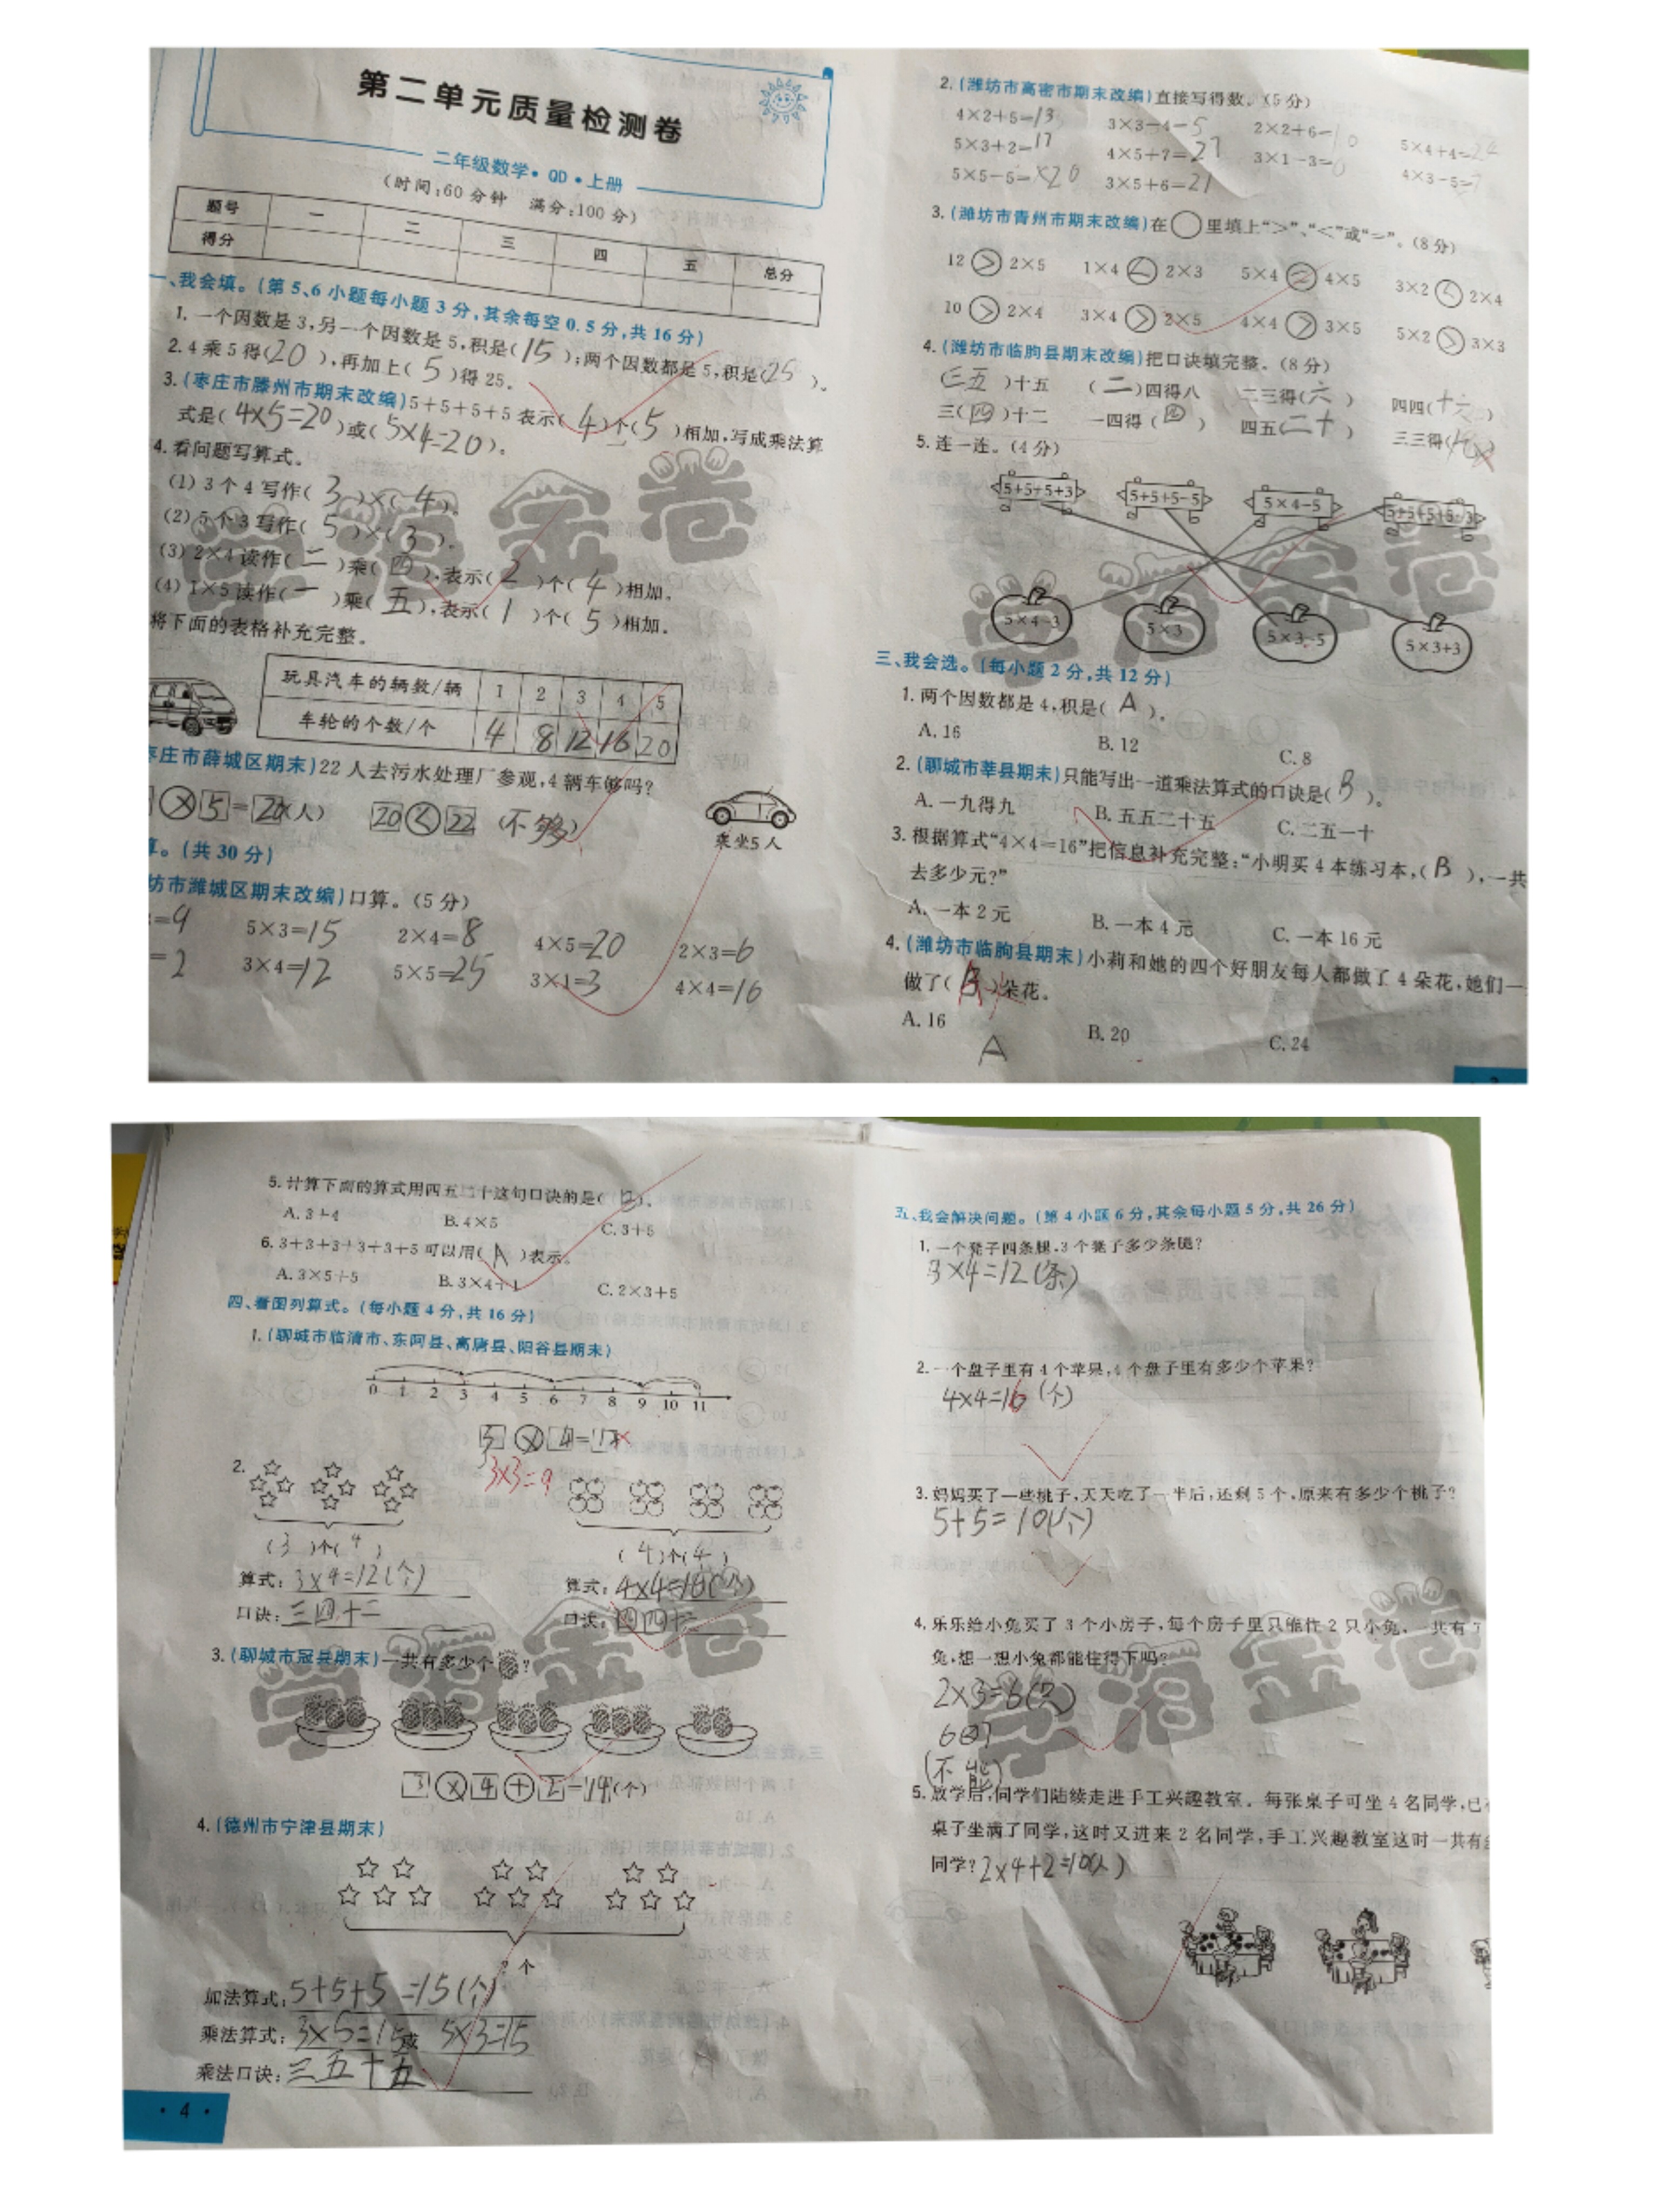 第二单元质量检测卷
二年级数学·QD·上册
(时间:60分钟 满分:100分)
题号 一 二 三 四 五 总分
得分
一、我会填。(第5、6小题每小题3分,其余每空0.5分,共16分)
1. 一个因数是3,另一个因数是5,积是(15);两个因数都是5,积是(25)。
2. 4乘5得(20),再加上(5)得25。
3. (枣庄市滕州市期末改编)5+5+5+5表示(4)个(5)相加,写成乘法算
式是(4×5=20)或(5×4=20)。
4. 看问题写算式。
(1) 3个4写作(3)×(4)。
(2) 5个3写作(5)×(3)。
(3) 2×4读作(二)乘(四),表示(2)个(4)相加。
(4) 1×5读作(一)乘(五),表示(1)个(5)相加。
将下面的表格补充完整。
玩具汽车的辆数/辆 1 2 3 4 5
车轮的个数/个 4 8 12 16 20
枣庄市薛城区期末)22人去污水处理厂参观,4辆车够吗?
×5=20(人) 20<22 (不够)
乘坐5人
算。(共30分)
坊市潍城区期末改编)口算。(5分)
=9 5×3=15 2×4=8 4×5=20 2×3=6
=2 3×4=12 5×5=25 3×1=3 4×4=16
2. (潍坊市高密市期末改编)直接写得数。(5分)
4×2+5=13 3×3-4=5 2×2+6=10 5×4+4=24
5×3+2=17 4×5+7=27 3×1-3=0 4×3-5=7
5×5-5=20 3×5+6=21
3. (潍坊市青州市期末改编)在○里填上“>”、“<”或“=”。(8分)
12>2×5 1×4<2×3 5×4=4×5 3×2<2×4
10>2×4 3×4>2×5 4×4>3×5 5×2>3×3
4. (潍坊市临朐县期末改编)把口诀填完整。(8分)
(三五)十五 (二)四得八 二三得(六) 四四(十六)
三(四)十二 一四得(四) 四五(二十) 三三得(九)
5. 连一连。(4分)
5+5+5+3 5+5+5-5 5×4-5 5+5+5+5-3
5×4-3 5×3 5×3-5 5×3+3
三、我会选。(每小题2分,共12分)
1. 两个因数都是4,积是(A)。
A. 16 B. 12 C. 8
2. (聊城市莘县期末)只能写出一道乘法算式的口诀是(B)。
A. 一九得九 B. 五五二十五 C. 二五一十
3. 根据算式“4×4=16”把信息补充完整:“小明买4本练习本,(B),一共
去多少元?”
A. 一本2元 B. 一本4元 C. 一本16元
4. (潍坊市临朐县期末)小莉和她的四个好朋友每人都做了4朵花,她们一
做了(B)朵花。
A. 16 B. 20 C. 24
A
学海金卷
学海金卷
5. 计算下面的算式用四五二十这句口诀的是(B)。
A. 3+4 B. 4×5 C. 3+5
6. 3+3+3+3+3+5可以用(A)表示。
A. 3×5+5 B. 3×4+1 C. 2×3+5
四、看图列算式。(每小题4分,共16分)
1. (聊城市临清市、东阿县、高唐县、阳谷县期末)
0 1 2 3 4 5 6 7 8 9 10 11
3×4=12
3×3=9
2.
(3)个(4) (4)个(4)
算式:3×4=12(个) 算式:4×4=16(个)
口诀:三四十二 口诀:四四十
3. (聊城市冠县期末)一共有多少个?
3×4+2=14(个)
4. (德州市宁津县期末)
?个
加法算式:5+5+5=15(个)
乘法算式:3×5=15或 5×3=15
乘法口诀:三五十五
·4·
五、我会解决问题。(第4小题6分,其余每小题5分,共26分)
1. 一个凳子四条腿,3个凳子多少条腿?
3×4=12(条)
2. 一个盘子里有4个苹果,4个盘子里有多少个苹果?
4×4=16(个)
3. 妈妈买了一些桃子,天天吃了一半后,还剩5个,原来有多少个桃子?
5+5=10(个)
4. 乐乐给小兔买了3个小房子,每个房子里只能住2只小兔,一共有7
兔,想一想小兔都能住得下吗?
2×3=6(只)
6<7
(不能)
5. 放学后,同学们陆续走进手工兴趣教室。每张桌子可坐4名同学,已
桌子坐满了同学,这时又进来2名同学,手工兴趣教室这时一共有
同学?2×4+2=10(人)
学海金卷
学海金卷